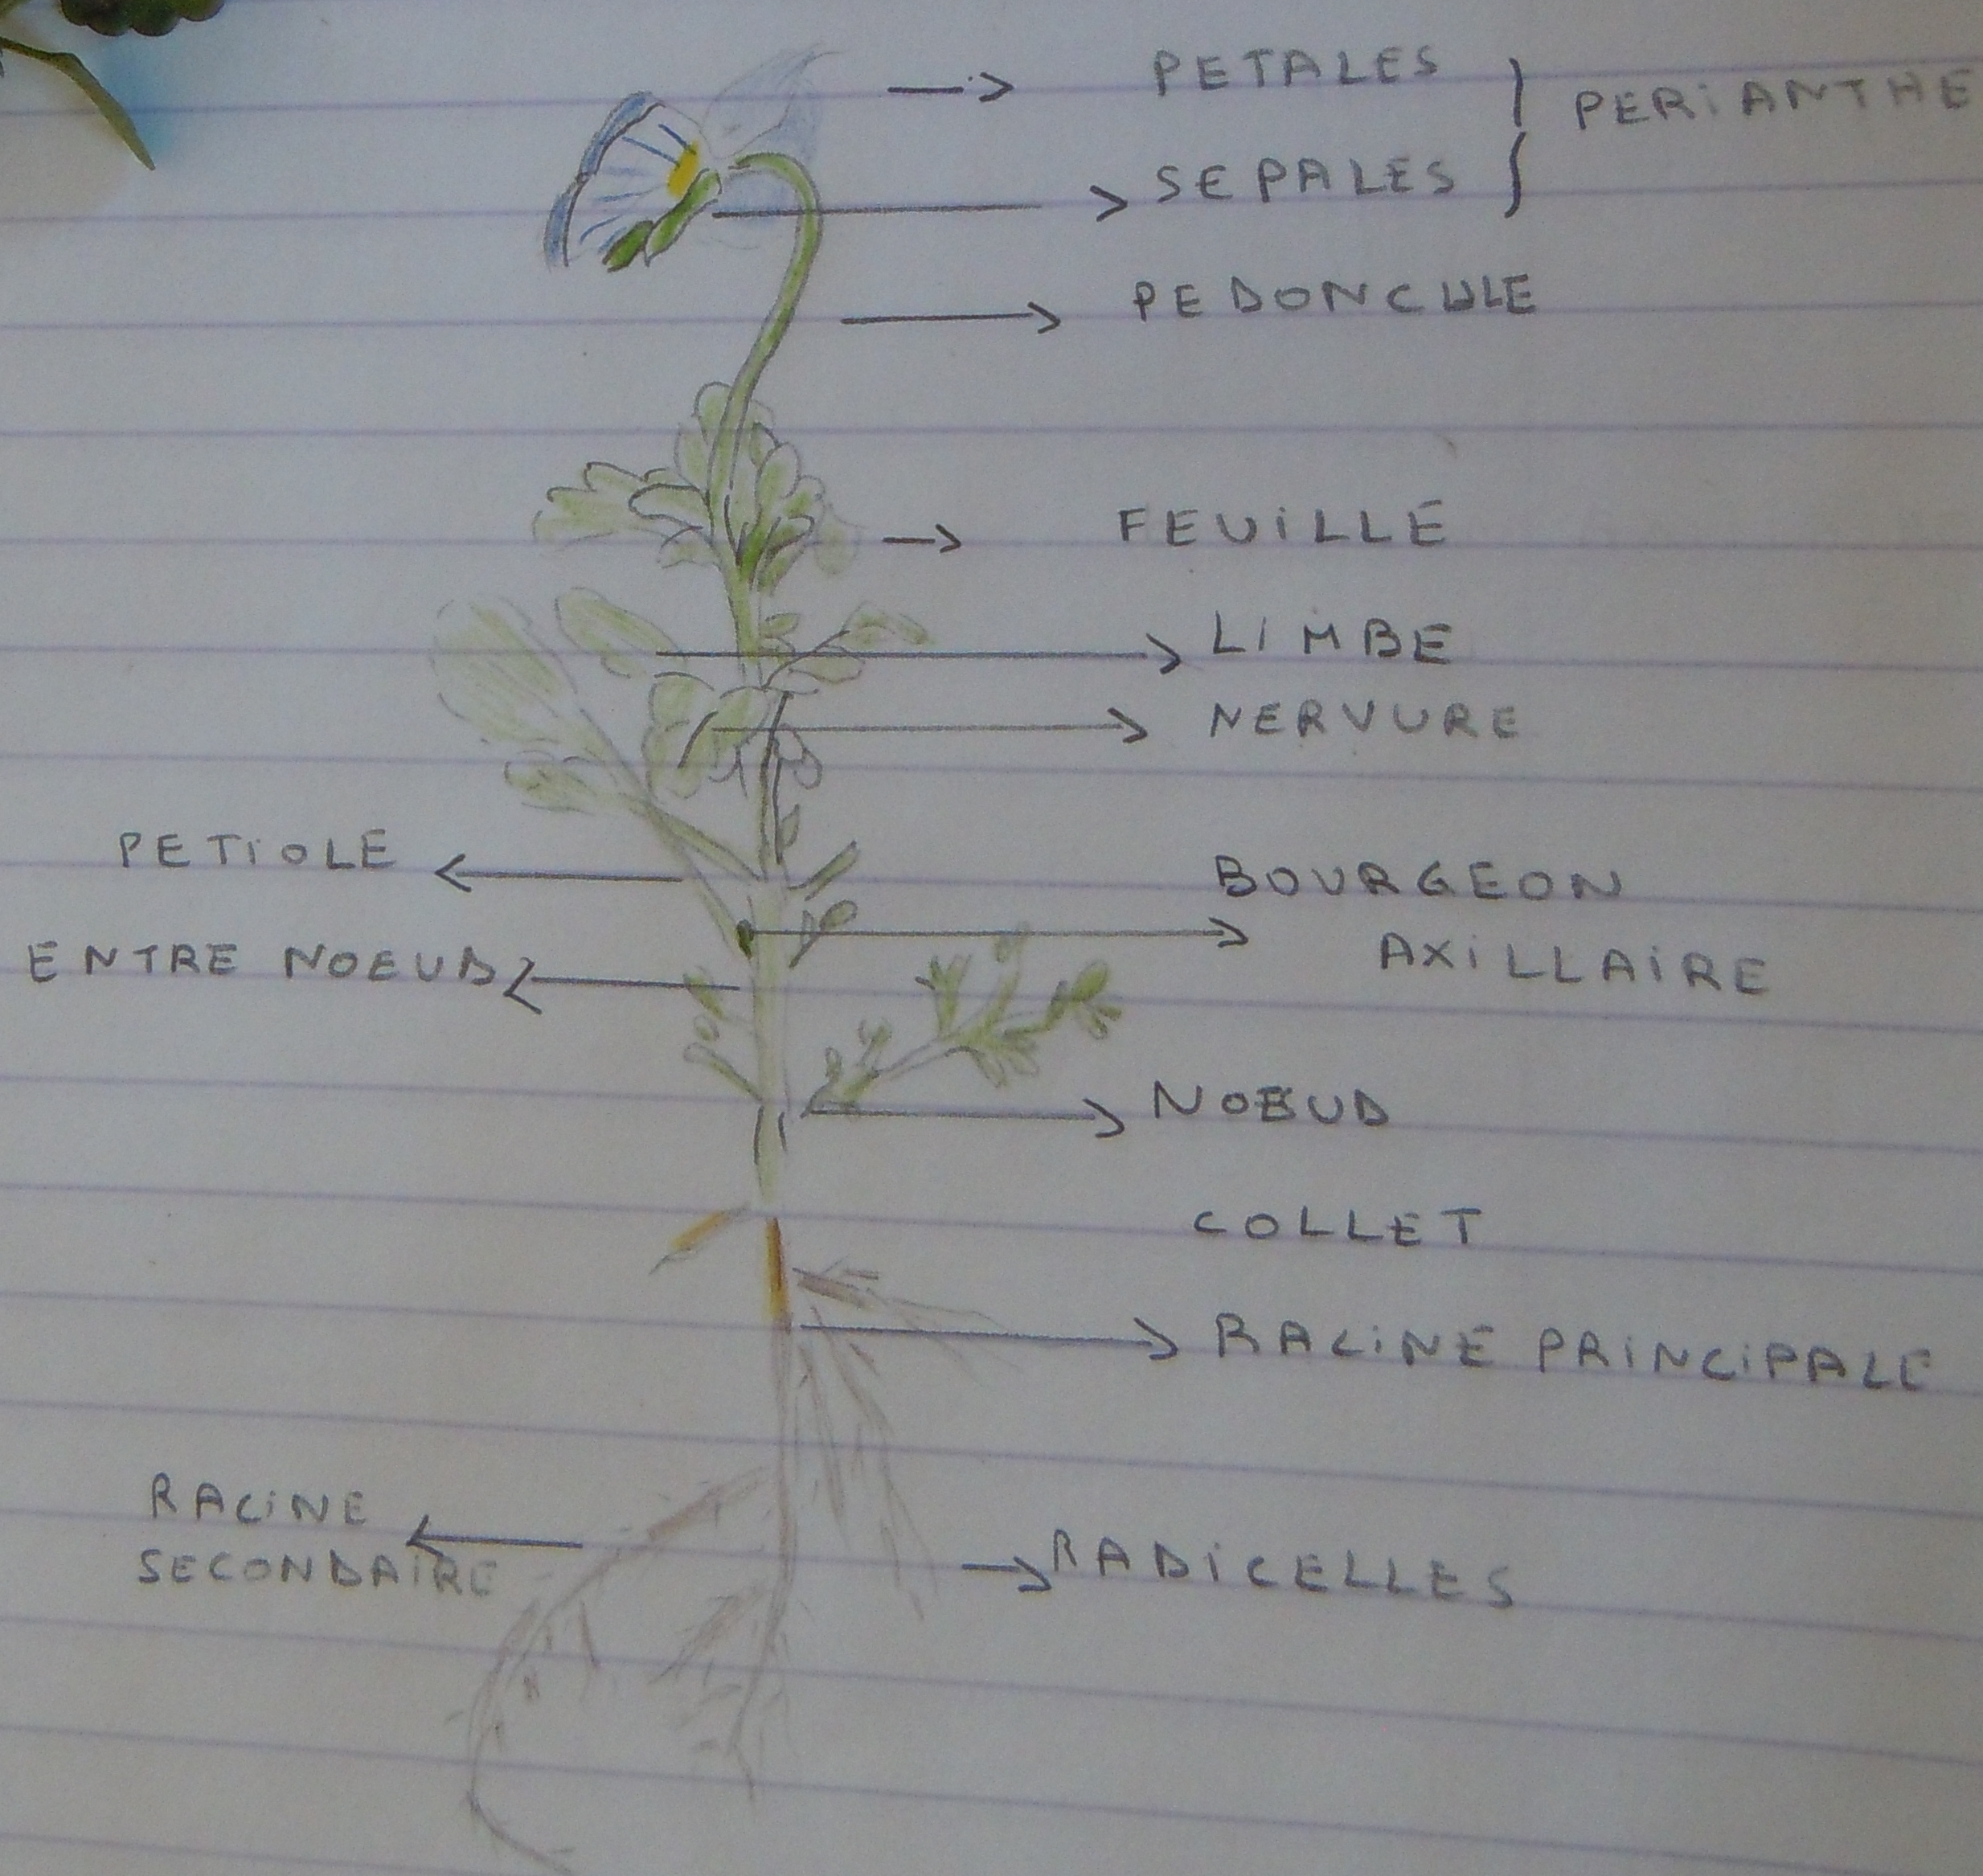 PETALES } PERiANTHE
SEPALES }
PEDONCULE
FEUiLLE
LIMBE
NERVURE
PETiOLE
BOURGEON
AXiLLAiRE
ENTRE NOEUD
NOEUD
COLLET
RACiNE PRiNCiPALE
RACiNE
SECONDAiRE
RADiCELLES